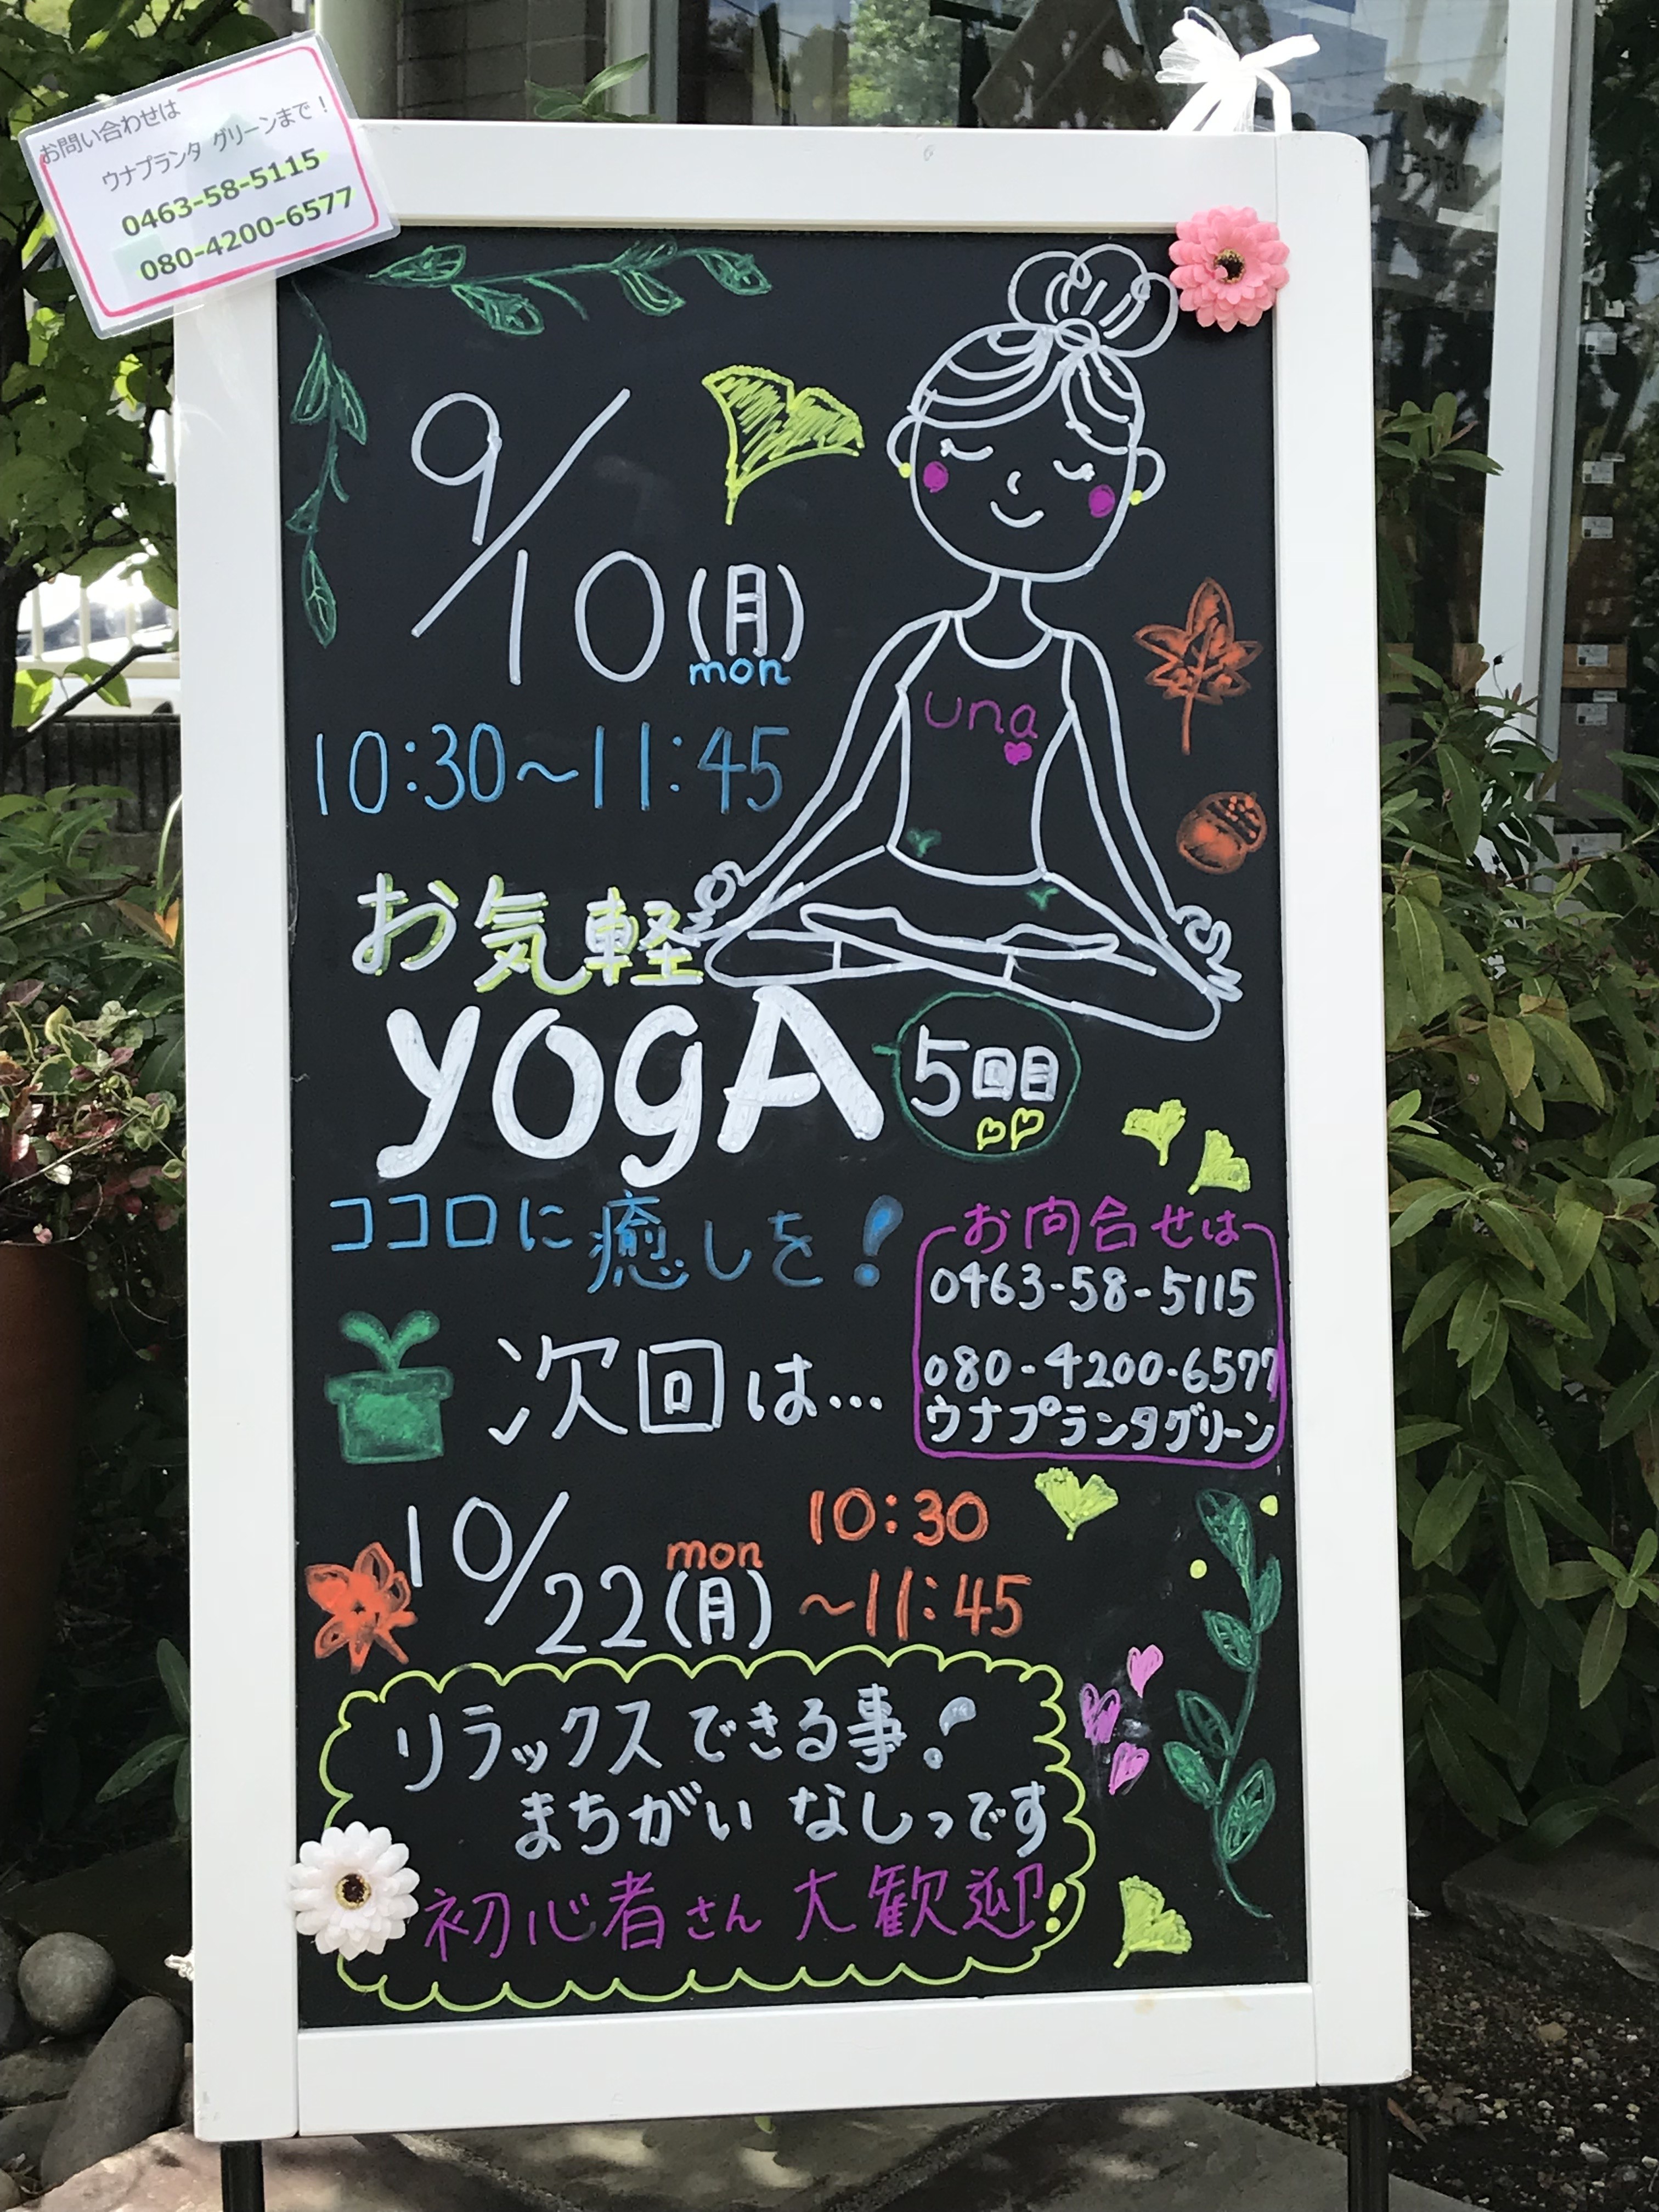 お問い合わせは
ウナプランタ グリーンまで!
0463-58-5115
080-4200-6577
9/10(月)
mon
una
10:30〜11:45
お気軽
yogA 5回目
ココロに癒しを!
お問合せは
0463-58-5115
080-4200-6577
ウナプランタグリーン
次回は...
10/22(月)
mon
10:30
〜11:45
リラックスできる事!
まちがい なしっです
初心者さん 大歓迎!